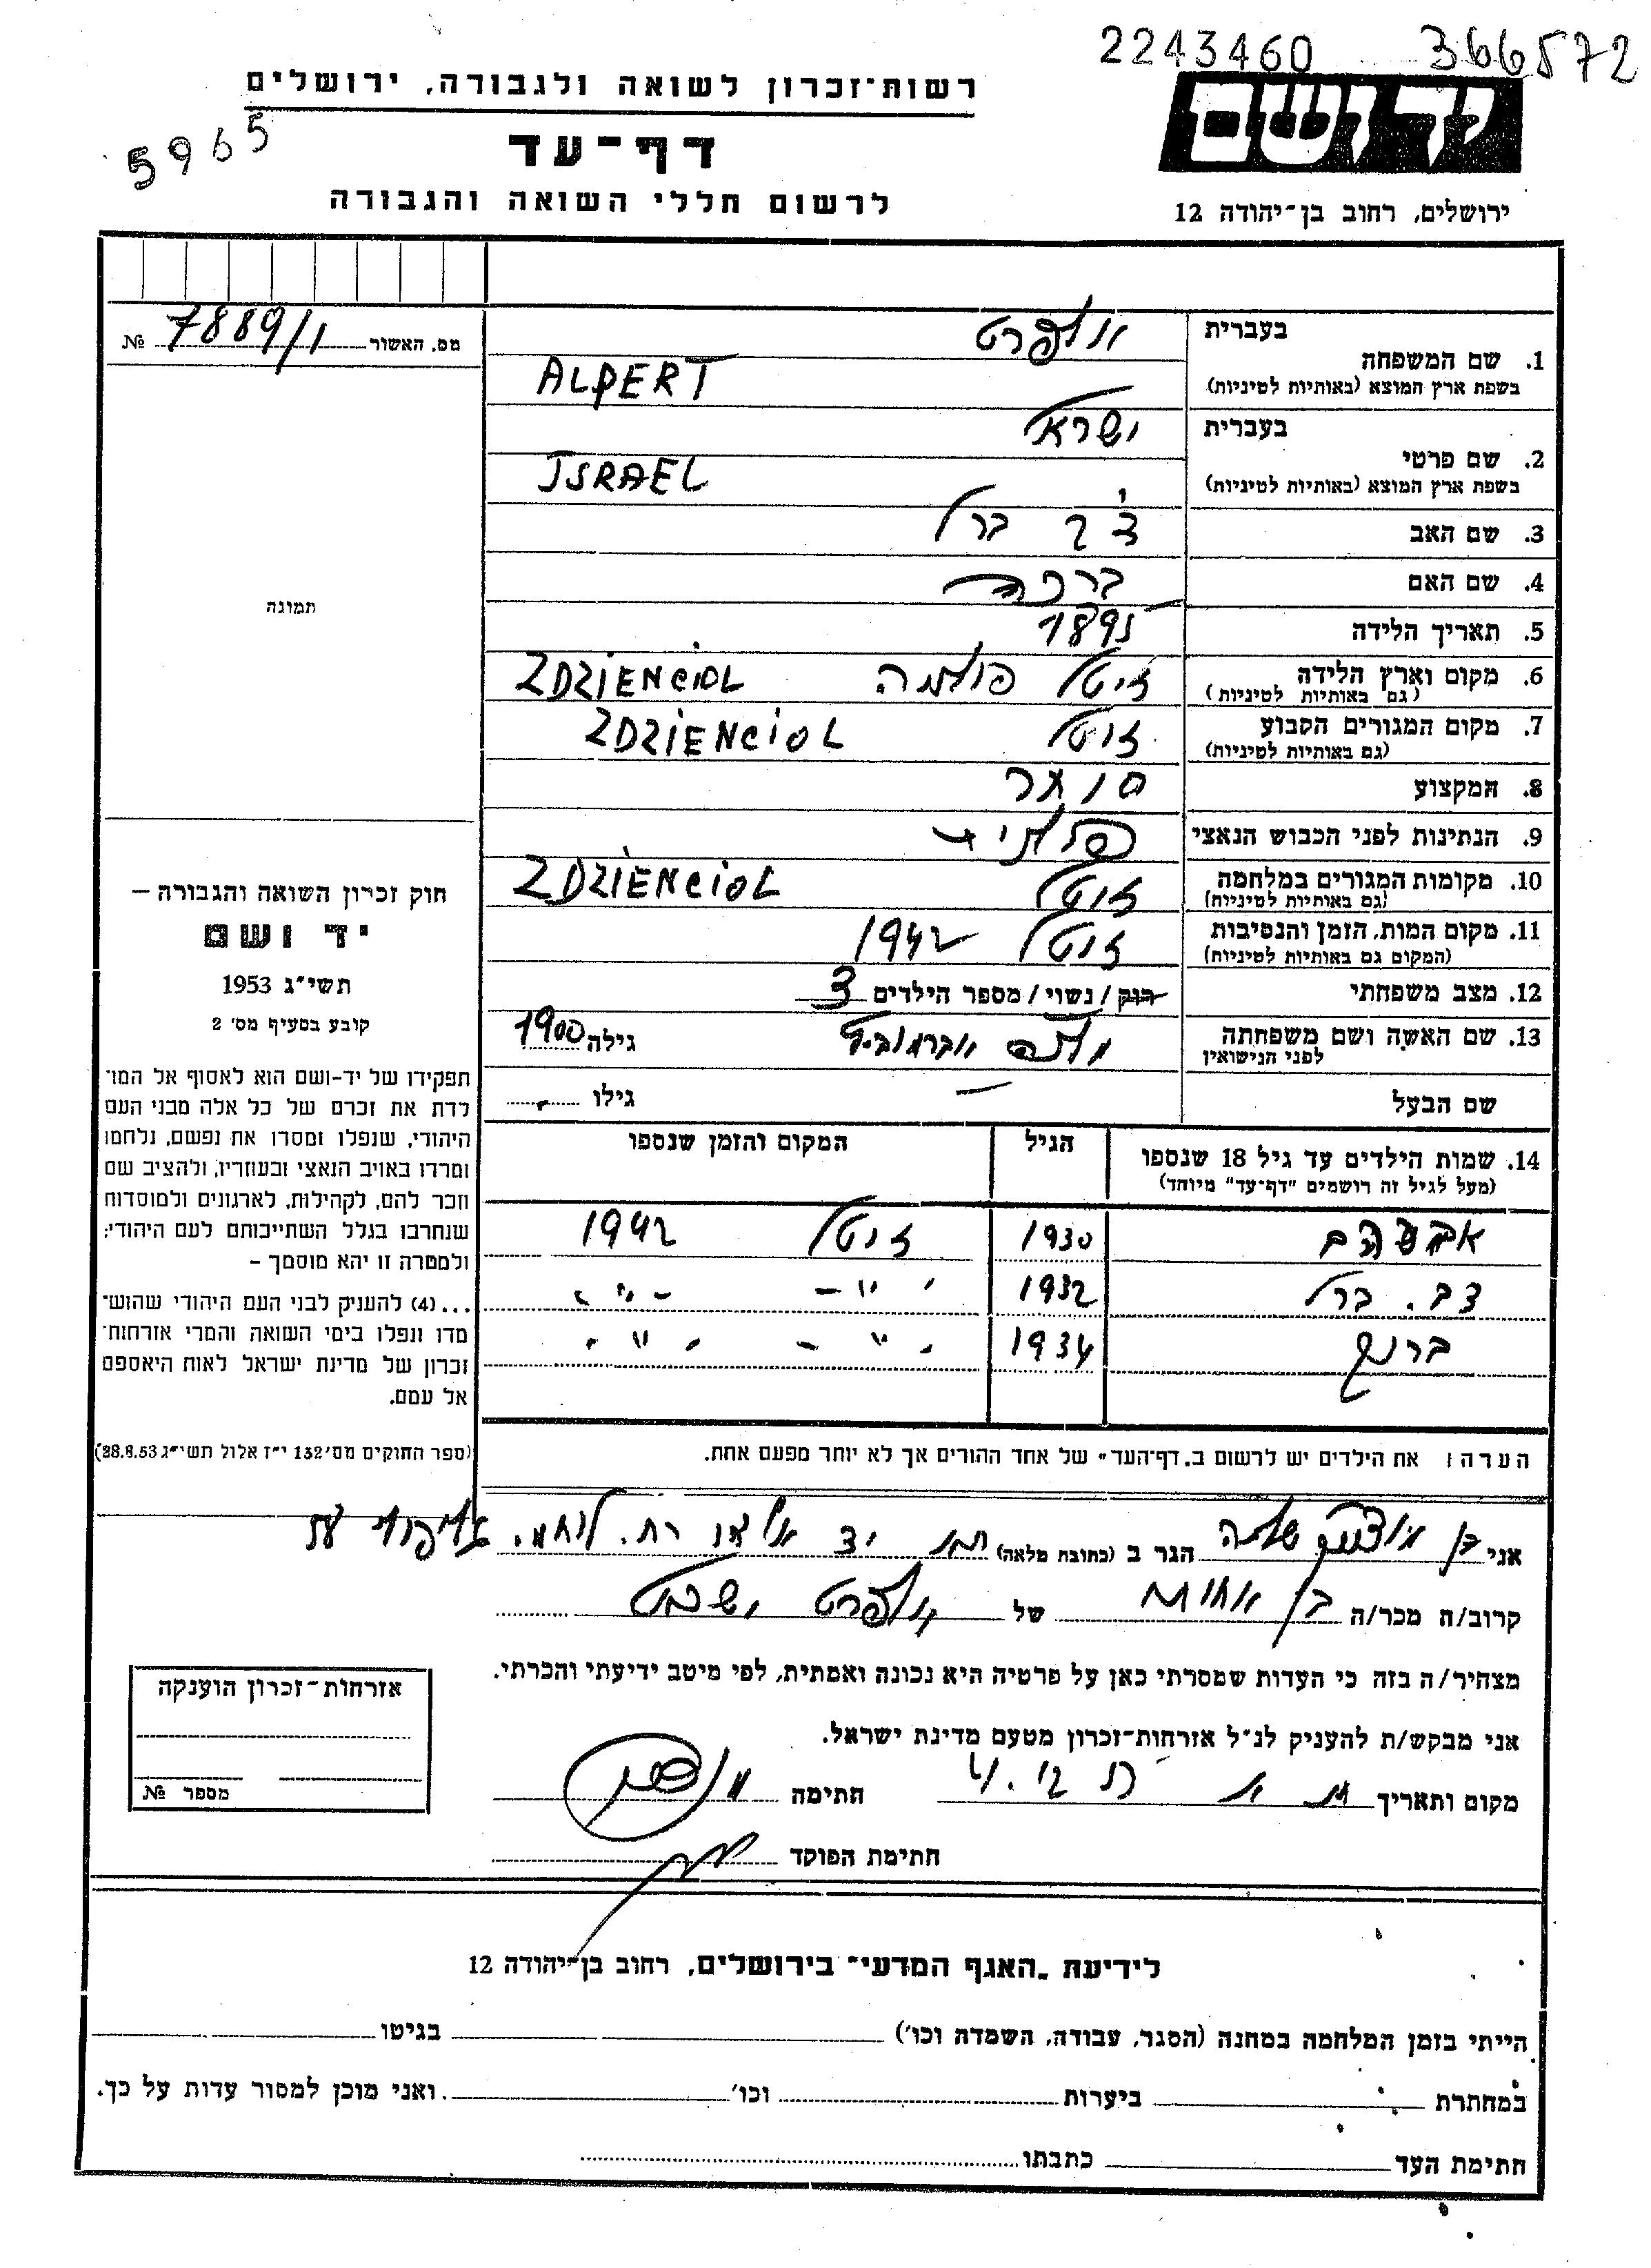 2243460 366572
רשות־זכרון לשואה ולגבורה, ירושלים
יד ושם
5965
דף־עד
לרשום חללי השואה והגבורה
ירושלים, רחוב בן־יהודה 12
מס. האשור 7889/1 №
1. שם המשפחה
בעברית אלפרט
בשפת ארץ המוצא (באותיות לטיניות) ALPERT
2. שם פרטי
בעברית ישראל
בשפת ארץ המוצא (באותיות לטיניות) ISRAEL
3. שם האב ברל
4. שם האם ברכה
5. תאריך הלידה 1895
6. מקום וארץ הלידה זיטל פולניה ZDZIENCIOL
(גם באותיות לטיניות)
7. מקום המגורים הקבוע זיטל ZDZIENCIOL
(גם באותיות לטיניות)
8. המקצוע סוחר
9. הנתינות לפני הכבוש הנאצי
10. מקומות המגורים במלחמה זיטל ZDZIENCIOL
(גם באותיות לטיניות)
11. מקום המות, הזמן והנסיבות זיטל 1942
(המקום גם באותיות לטיניות)
12. מצב משפחתי רוק / נשוי / מספר הילדים 3
13. שם האשה ושם משפחתה גילה 1900
לפני הנישואין
שם הבעל – גילו
תמונה
14. שמות הילדים עד גיל 18 שנספו הגיל המקום והזמן שנספו
(מעל לגיל זה רושמים "דף־עד" מיוחד)
אברהם 1930 זיטל 1942
ברל 1932 - " - - " -
1934 - " - - " -
הערה: את הילדים יש לרשום ב„דף־העד" של אחד ההורים אך לא יותר מפעם אחת.
חוק זכרון השואה והגבורה –
יד ושם
תשי"ג 1953
קובע בסעיף מס' 2
תפקידו של יד-ושם הוא לאסוף אל המו־
לדת את זכרם של כל אלה מבני העם
היהודי, שנפלו ומסרו את נפשם, נלחמו
ומרדו באויב הנאצי ובעוזריו, ולהציב שם
וזכר להם, לקהילות, לארגונים ולמוסדות
שנחרבו בגלל השתייכותם לעם היהודי;
ולמטרה זו יהא מוסמך –
...(4) להעניק לבני העם היהודי שהוש־
מדו ונפלו בימי השואה והמרי אזרחות־
זכרון של מדינת ישראל לאות היאספם
אל עמם.
(ספר החוקים מס' 132 י"ז אלול תשי"ג 28.8.53)
אני הגר ב (כתובת מלאה) יד אליהו רח.
קרוב/ה מכר/ה בן אחות של אלפרט ישראל
מצהיר/ה בזה כי העדות שמסרתי כאן על פרטיה היא נכונה ואמתית, לפי מיטב ידיעתי והכרתי.
אני מבקש/ת להעניק לנ"ל אזרחות־זכרון מטעם מדינת ישראל.
מקום ותאריך חתימה
חתימת הפוקד
אזרחות־זכרון הוענקה
מספר №
לידיעת „האגף המדעי" בירושלים, רחוב בן־יהודה 12
הייתי בזמן המלחמה במחנה (הסגר, עבודה, השמדה וכו') בגיטו
במחתרת ביערות וכו' ואני מוכן למסור עדות על כך.
חתימת העד כתבתו